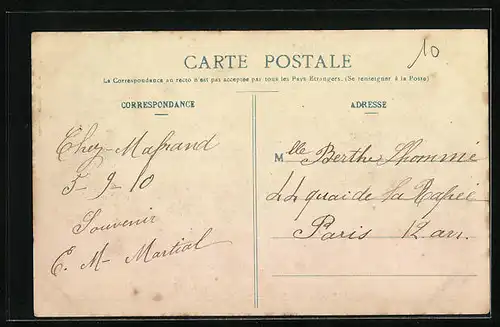 10
CARTE POSTALE
La Correspondance au recto n'est pas acceptée par tous les Pays Etrangers. (Se renseigner à la Poste)
CORRESPONDANCE
Chez
5-9-10
Souvenir
E. M- Martial
ADRESSE
Mlle Berthe Lhommé
44 quai de la Rapée
Paris 12 arr.